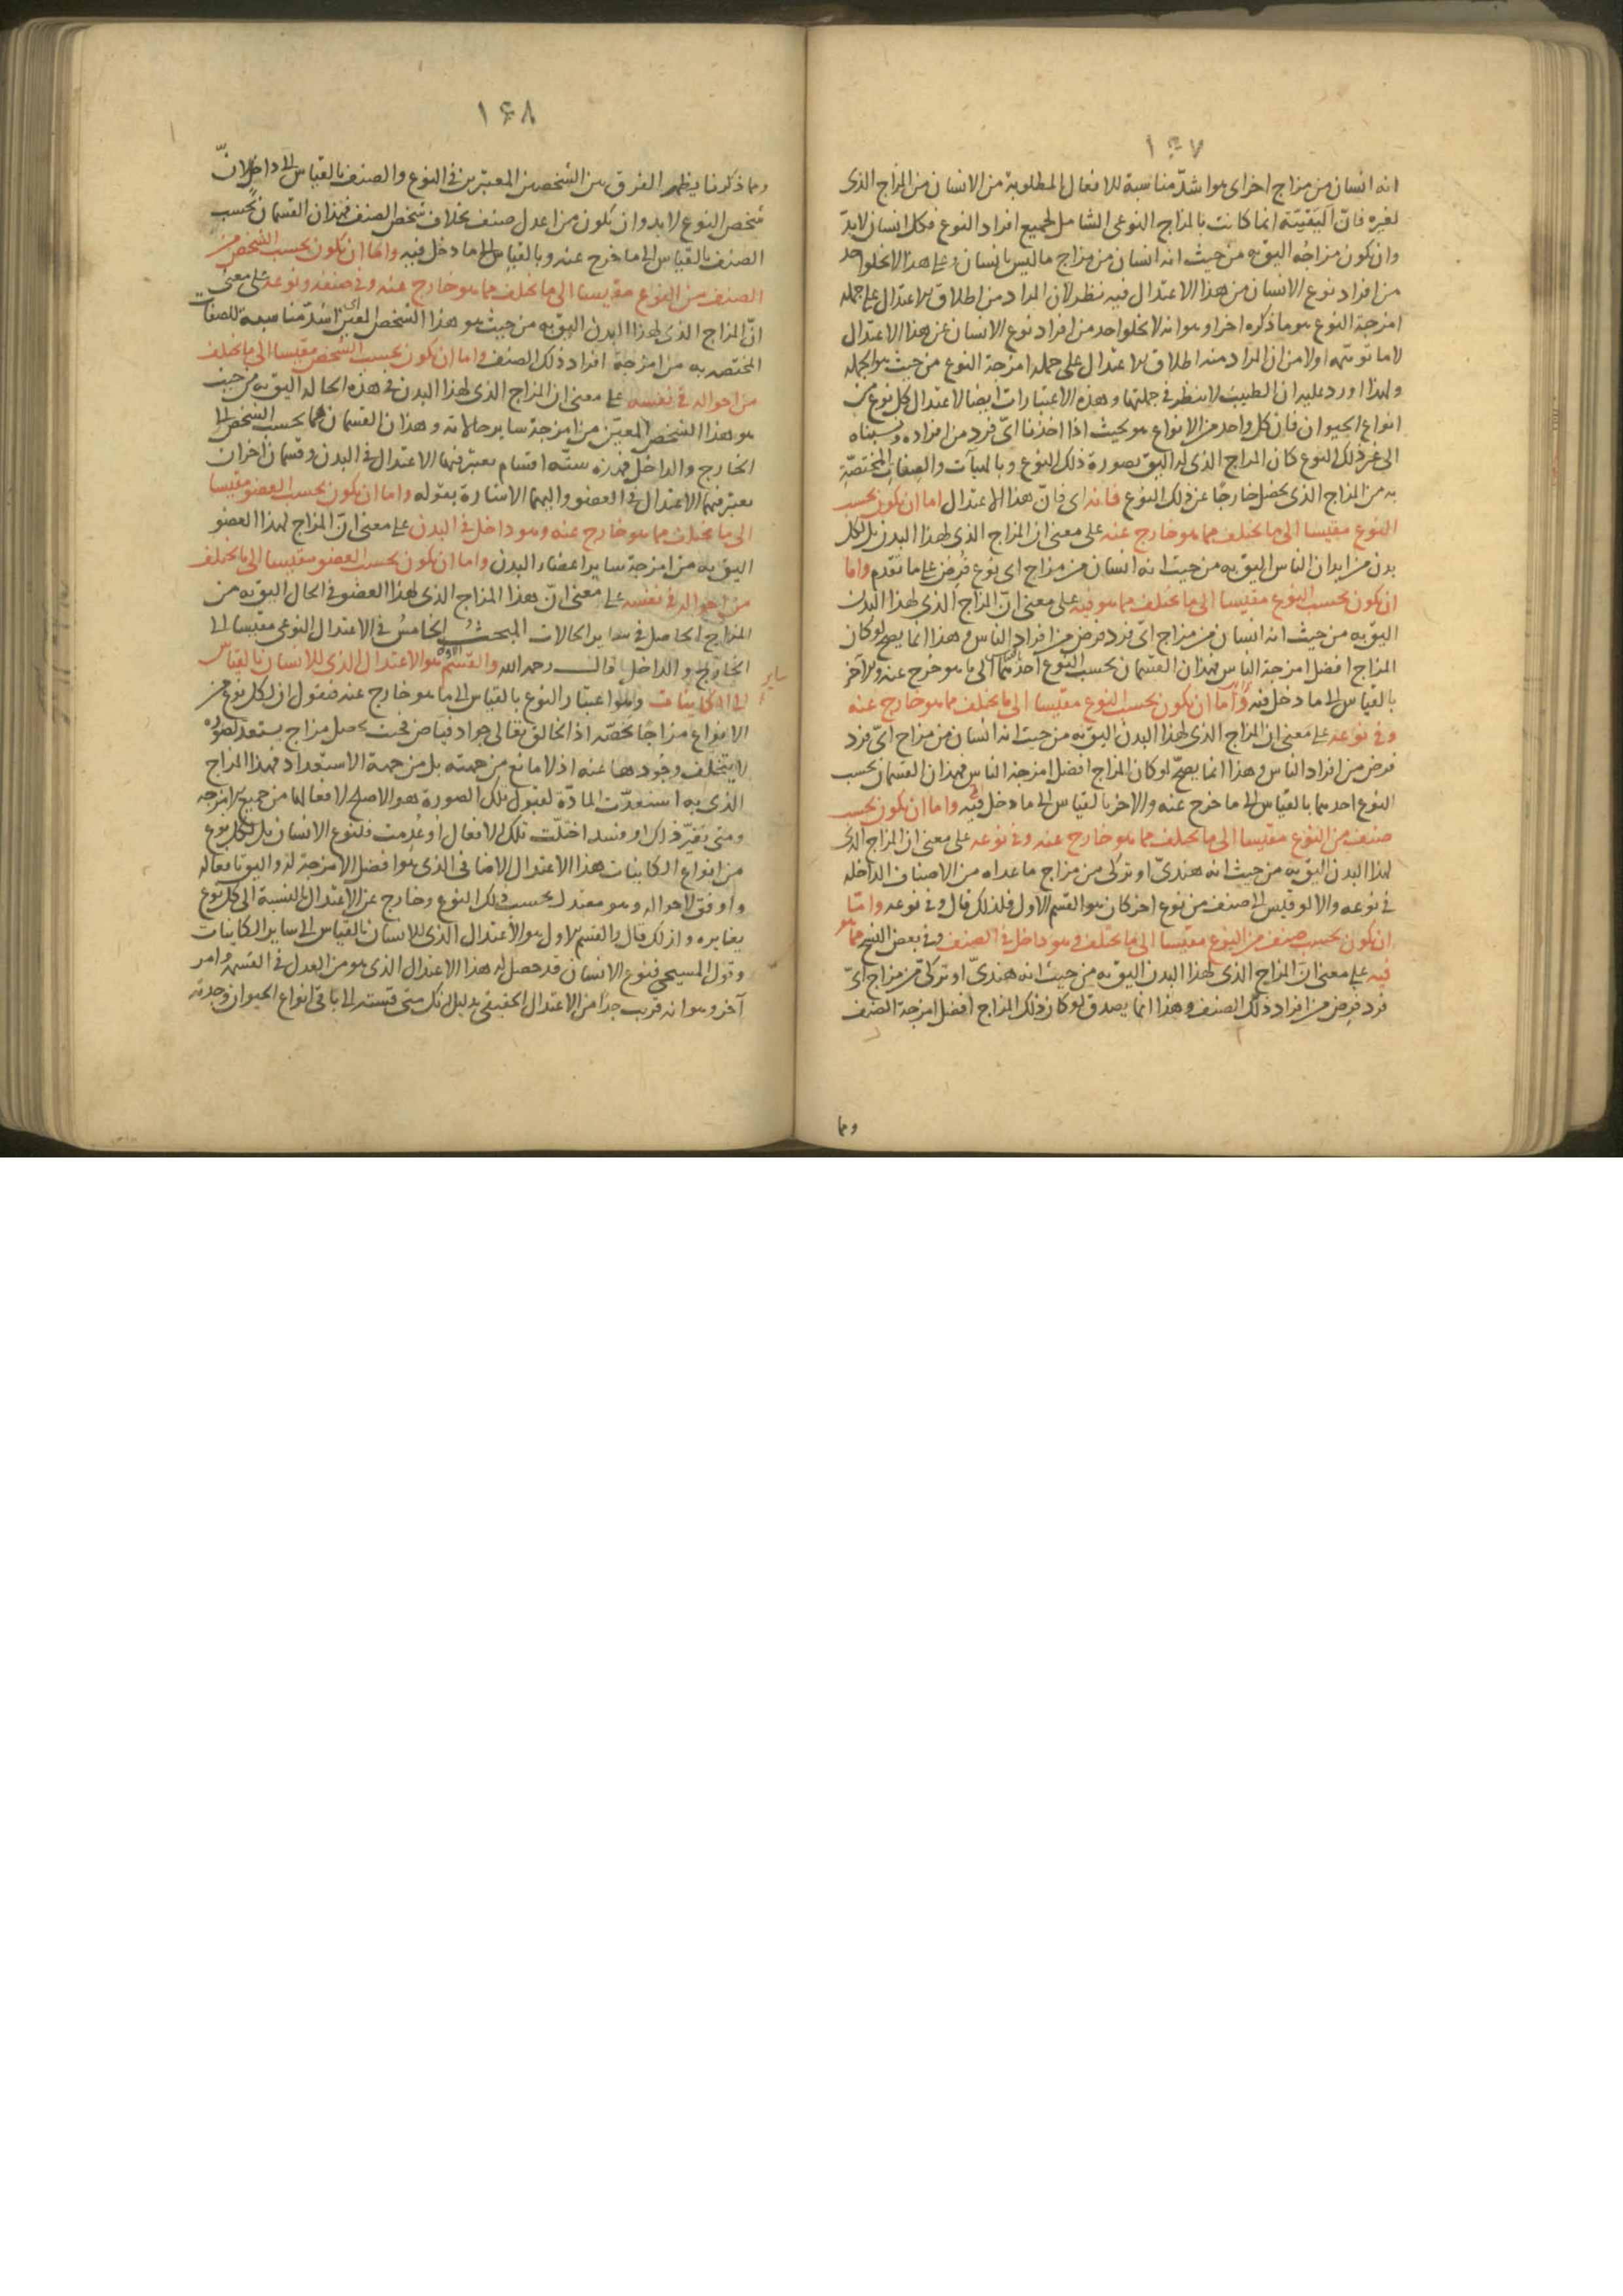 ١٤٧
انه انسان من مزاج اخر اى هو اشدّ مناسبة للافعال المطلوبة من الانسان من المزاج الذى
لغيره فانّ اليقيّة انما كانت بالمزاج النوعى الشامل لجميع افراد النوع فكل انسان لا بدّ
وان يكون مزاجه اليق به من حيث انه انسان من مزاج ما ليس بانسان وعلى هذا لا يخلو احد
من افراد نوع الانسان من هذا الاعتدال فيه نظر لان المراد من اطلاق الاعتدال على جملة
امزجة النوع هو ما ذكره اخرا وهو انه لا يخلو احد من افراد نوع الانسان عن هذا الاعتدال
لا ما توهمه اولا من ان المراد منه اطلاق الاعتدال على جملة امزجة النوع من حيث هو الجملة
ولهذا اورد عليه ان الطبيب لا ينظر فى جملتها وهذه الاعتبارات ايضا لاعتدال كل نوع من
انواع الحيوان فان كل واحد من الانواع هو بحيث اذا اخذنا اىّ فرد من افراده ونسبناه
الى غير ذلك النوع كان المزاج الذى له اليق بصورة ذلك النوع وبالهيآت والصفات المختصّة
به من المزاج الذى يحصل خارجًا عن ذلك النوع فانه اى فانّ هذا الاعتدال اما ان يكون بحسب
النوع مقيسا الى ما يختلف مما هو خارج عنه على معنى ان المزاج الذى لهذا البدن بل لكل
بدن من ابدان الناس اليق به من حيث انه انسان من مزاج اى نوع فُرض على ما تقدم واما
ان يكون بحسب النوع مقيسا الى ما يختلف مما هو فيه على معنى انّ المزاج الذى لهذا البدن
اليق به من حيث انه انسان من مزاج اىّ فرد فرض من افراد الناس وهذا انما يصح لو كان
المزاج افضل امزجة الناس فهذان القسمان بحسب النوع احدهما الى ما هو خرج عنه والاخر
بالقياس الى ما دخل فيه واما ان يكون بحسب النوع مقيسا الى ما يختلف مما هو خارج عنه
وفى نوعه على معنى ان المزاج الذى لهذا البدن اليق به من حيث انه انسان من مزاج اىّ فرد
فرض من افراد الناس وهذا انما يصحّ لو كان المزاج افضل امزجة الناس فهذان القسمان بحسب
النوع احدهما بالقياس الى ما خرج عنه والاخر بالقياس الى ما دخل فيه واما ان يكون بحسب
صنف من النوع مقيسا الى ما يختلف مما هو خارج عنه وفى نوعه على معنى ان المزاج الذى
لهذا البدن اليق به من حيث انه هندىّ او تركى من مزاج ما عداه من الاصناف الداخلة
فى نوعه والا لو قيس الى صنف من نوع اخر كان هو القسم الاول فلذلك قال وفى نوعه وامّا
ان يكون بحسب صنف من النوع مقيسا الى ما يختلف وهو داخل فى الصنف وفى بعض النسخ مما هو
فيه على معنى ان المزاج الذى لهذا البدن اليق به من حيث انه هندىّ او تركىّ من مزاج اىّ
فرد فرض من افراد ذلك الصنف وهذا انما يصدق لو كان ذلك المزاج افضل امزجة الصنف
ومما
١٤٨
ومما ذكرنا يظهر الفرق بين الشخصين المعتبرين فى النوع والصنف بالقياس الى داخل لانّ
شخص النوع لا بد وان يكون من اعدل صنف بخلاف شخص الصنف فهذان القسمان بحسب
الصنف بالقياس الى ما خرج عنه وبالقياس الى ما دخل فيه واما ان يكون بحسب الشخص من
الصنف من النوع مقيسا الى ما يختلف مما هو خارج عنه وفى صنفه ونوعه على معنى
انّ المزاج الذى لهذا البدن اليق به من حيث هو هذا الشخص المعيّن اى اشدّ مناسبة للصفات
المختصه به من امزجة افراد ذلك الصنف واما ان يكون بحسب الشخص مقيسا الى ما يختلف
من احواله فى نفسه على معنى ان المزاج الذى لهذا البدن فى هذه الحاله اليق به من حيث
هو هذا الشخص المعيّن من امزجة ساير حالاته وهذان القسمان هما بحسب الشخص الى
الخارج والداخل فهذه ستّه اقسام يعتبر فيها الاعتدال فى البدن وقسمان اخران
يعتبر فيهما الاعتدال فى العضو واليهما الاشارة بقوله واما ان يكون بحسب العضو مقيسا
الى ما يختلف مما هو خارج عنه وهو داخل فى البدن على معنى انّ المزاج لهذا العضو
اليق به من امزجة ساير اعضاء البدن واما ان يكون بحسب العضو مقيسا الى ما يختلف
من احواله فى نفسه على معنى انّ هذا المزاج الذى لهذا العضو فى الحال اليق به من
المزاج الحاصل فى ساير الحالات البحث الخامسُ فى الاعتدال النوعى مقيسا الى
الخارج والداخل قالــــ رحمه الله والقسم الاول هو الاعتدال الذى للانسان بالقياس
الى ساير الكاينات وهو اعتبار النوع بالقياس الى ما هو خارج عنه فنقول ان لكل نوع من
الانواع مزاجًا يخصّه اذ الخالق تعالى جواد فياض فحيث يحصل مزاج يستعد لصورة
لا يتخلف وجودها عنه اذ لا مانع من جهته بل من جهة الاستعداد فهذا المزاج
الذى به استعدّت المادّة لقبول تلك الصورة هو الاصلح لافعالها من جميع الامزجه
ومتى تغيّر ذلك او فسد اختلّت تلك الافعال او عُدِمت فلنوع الانسان بل لكل نوع
من انواع الكاينات هذا الاعتدال الاضافى الذى هو افضل الامزجة له واليق بافعاله
واوفق لاحواله وهو معتدل بحسب ذلك النوع وخارج عن الاعتدال بالنسبة الى كل نوع
يغايره ولذلك قال والقسم الاول هو الاعتدال الذى للانسان بالقياس الى ساير الكاينات
وقول المسيحى فنوع الانسان قد حصل له هذا الاعتدال الذى هو من العدل فى القسمة وامر
آخر وهو انه قريب جدّا من الاعتدال الحقيقى بدليل انك متى قسته الى باقى انواع الحيوان وجدته